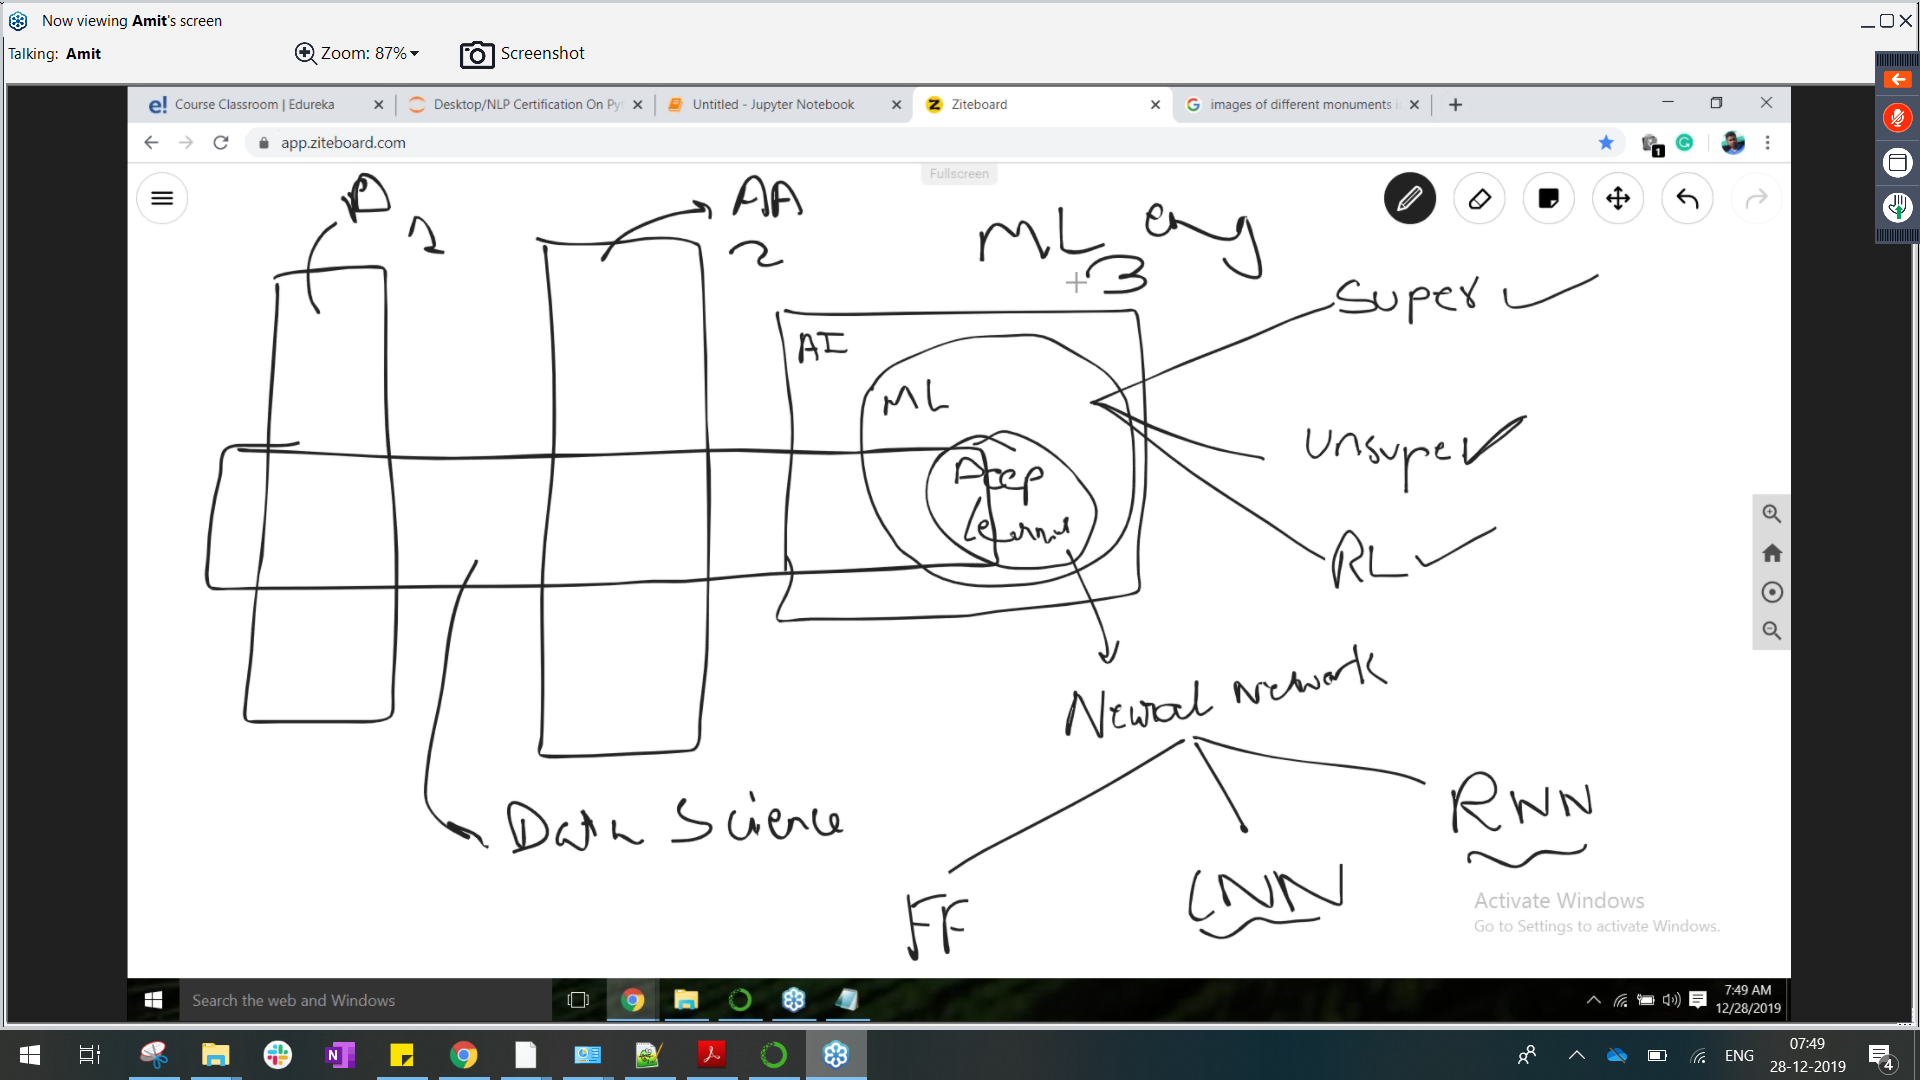 Now viewing Amit's screen
Talking: Amit
Zoom: 87%
Screenshot
Course Classroom | Edureka
Desktop/NLP Certification On Pyt
Untitled - Jupyter Notebook
Ziteboard
images of different monuments i
app.ziteboard.com
1
Fullscreen
D
1
AA
2
ML eng
3
AI
ML
Deep
Super
Unsupe
RL
Neural Network
FF
CNN
RNN
Data Science
Activate Windows
Go to Settings to activate Windows.
Search the web and Windows
7:49 AM
12/28/2019
ENG
07:49
28-12-2019
4